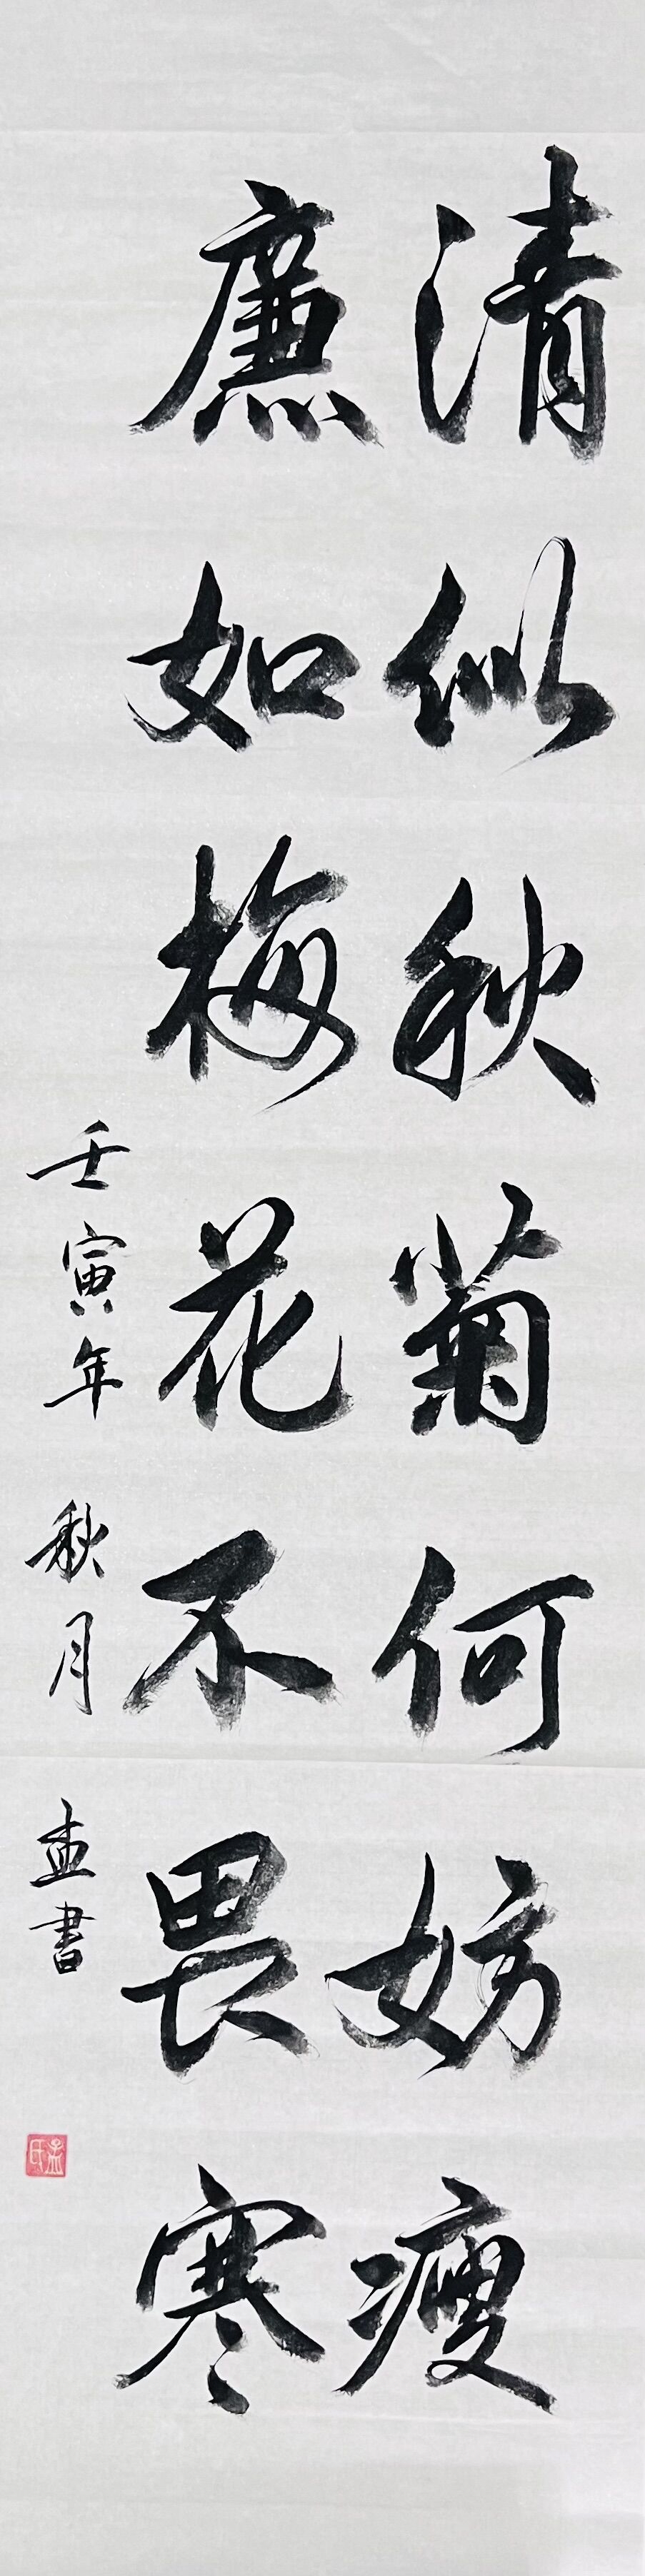 清似秋菊何妨瘦
廉如梅花不畏寒
壬寅年秋月
孟書
孟氏